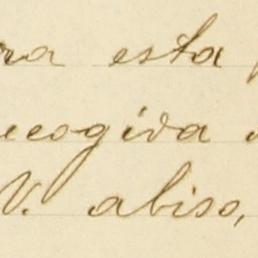 ra esta
ecogida
V. abiso,